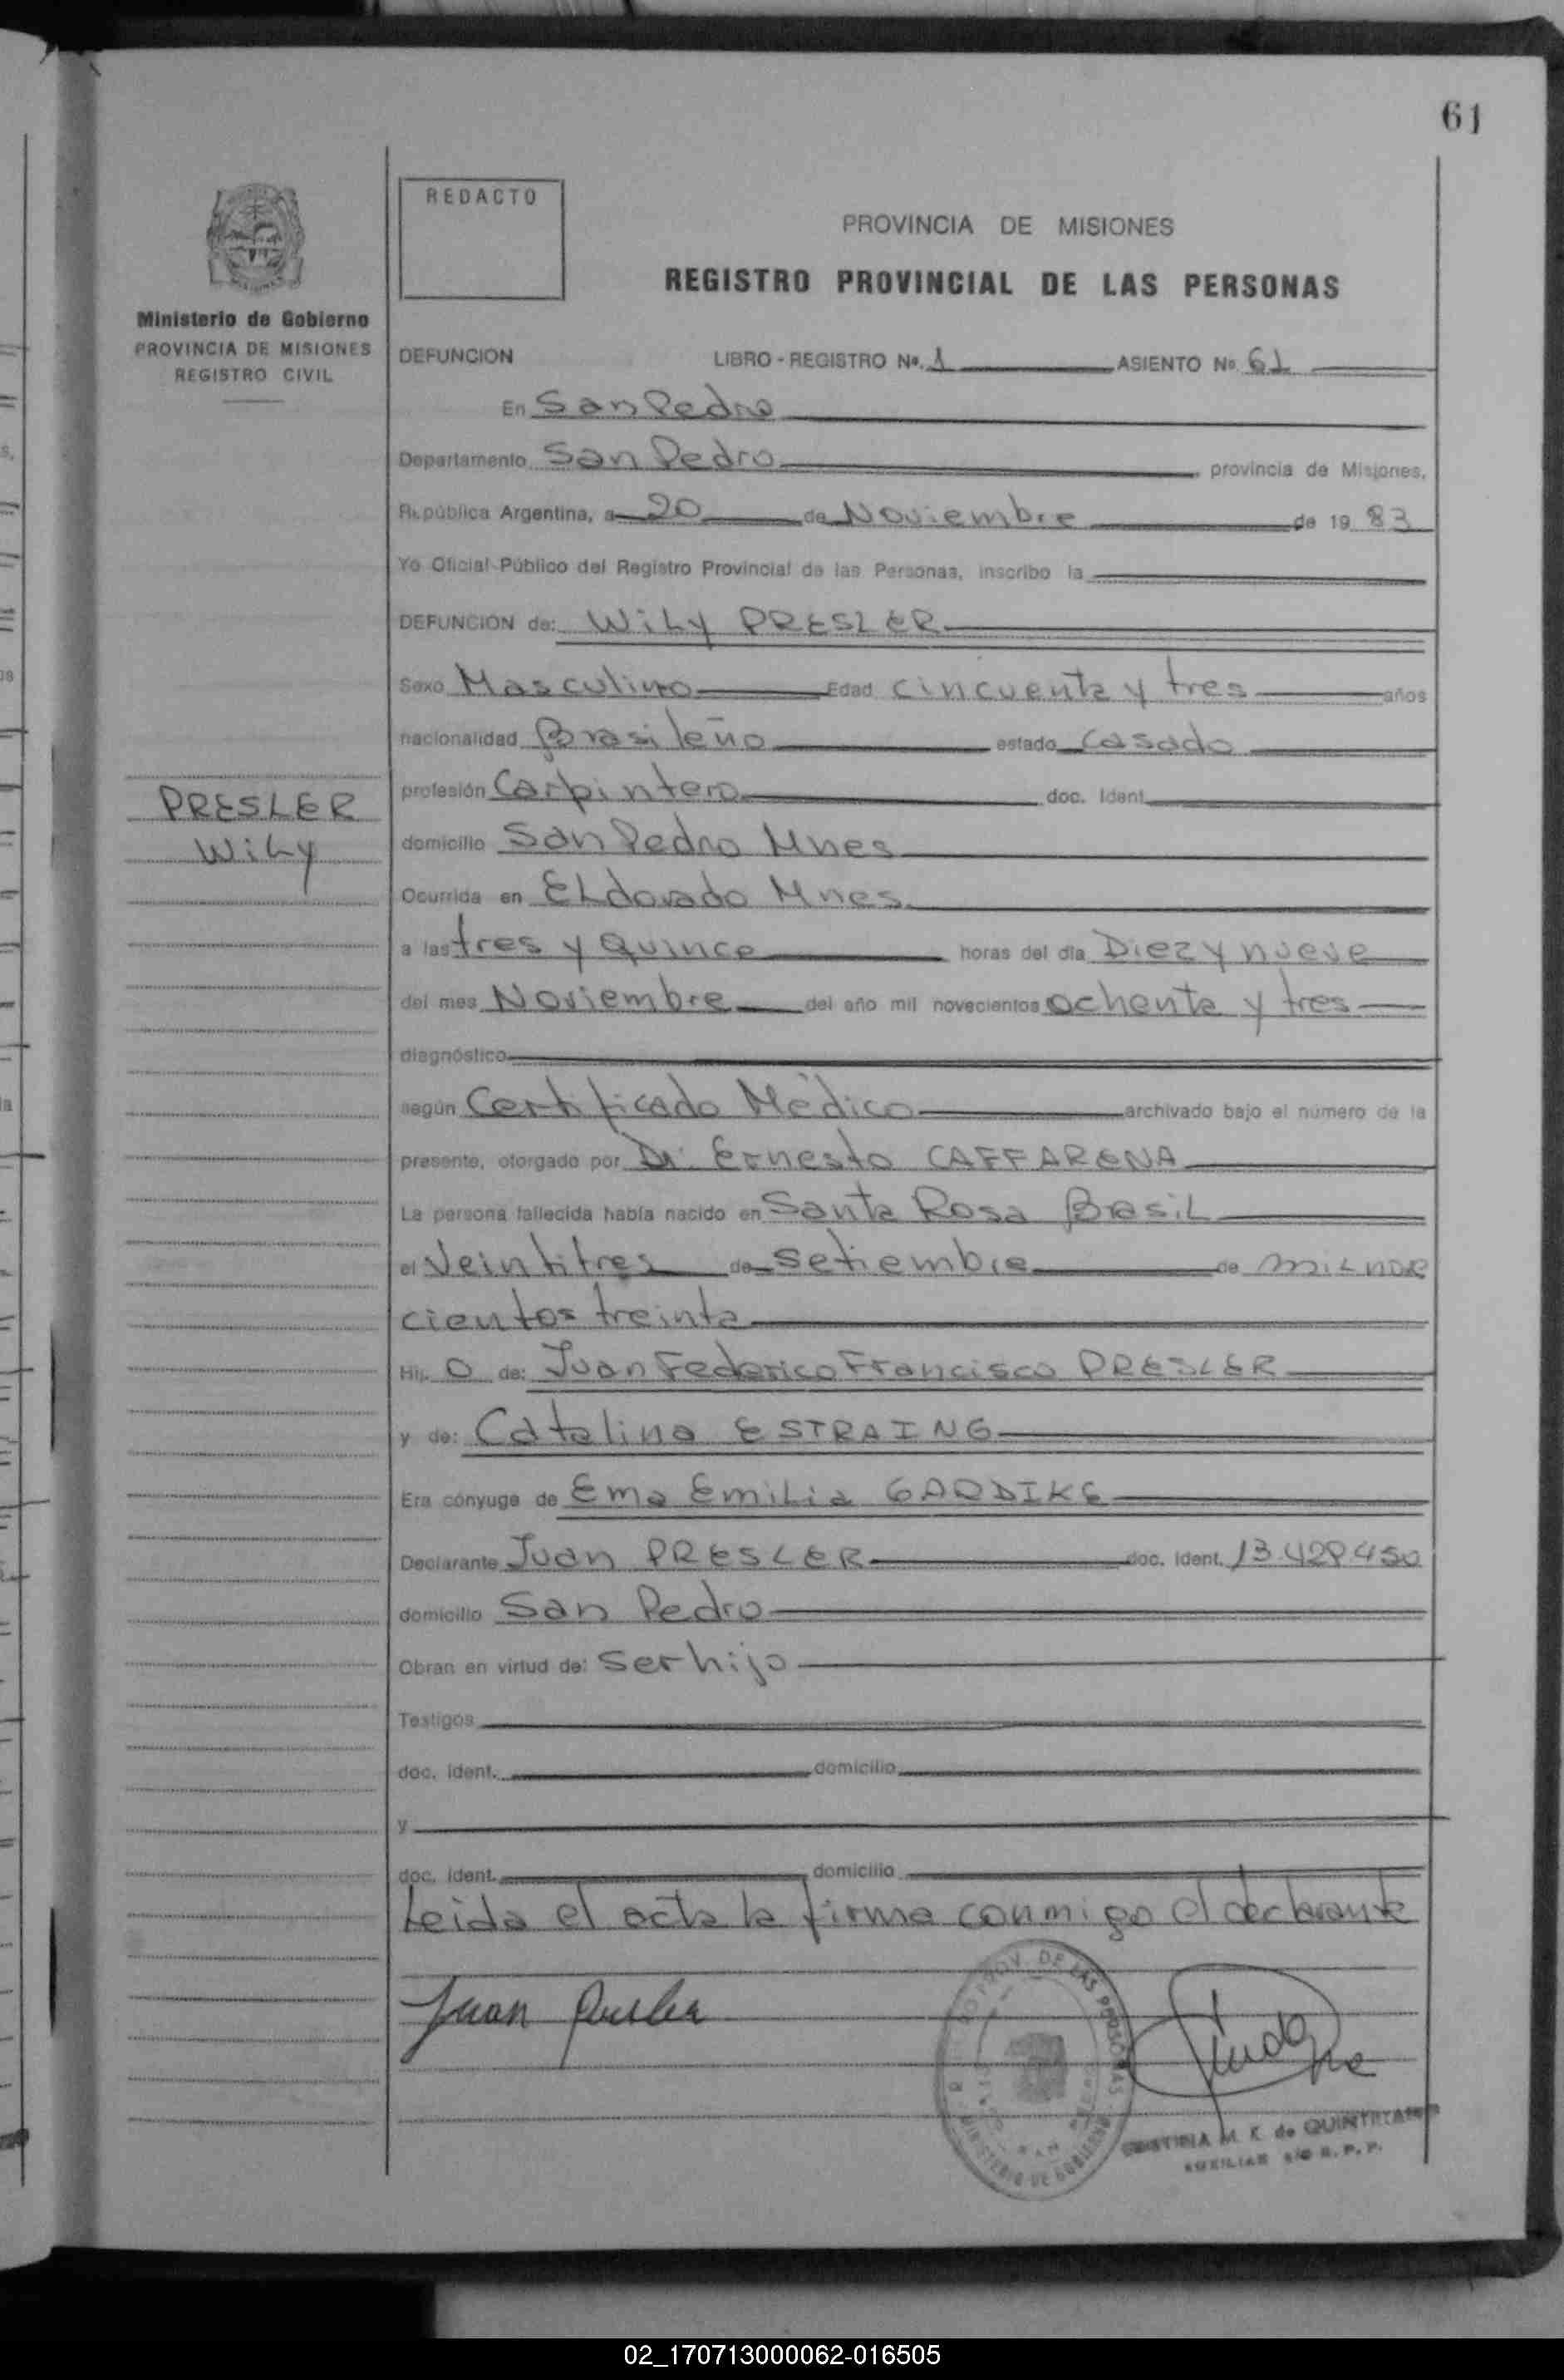 61
REDACTO
PROVINCIA DE MISIONES
REGISTRO PROVINCIAL DE LAS PERSONAS
Ministerio de Gobierno
PROVINCIA DE MISIONES
REGISTRO CIVIL
DEFUNCION LIBRO - REGISTRO Nº. 1 ASIENTO Nº 61
En San Pedro
Departamento San Pedro, provincia de Misiones,
República Argentina, a 20 de Noviembre de 19 83
Yo Oficial Público del Registro Provincial de las Personas, inscribo la
DEFUNCION de: WiLy PRESLER
Sexo Masculino Edad cincuenta y tres años
nacionalidad Brasileño estado Casado
PRESLER
WiLy
profesión Carpintero doc. Ident.
domicilio San Pedro Mnes
Ocurrida en ELdorado Mnes.
a las tres y Quince horas del día Diez y nueve
del mes Noviembre del año mil novecientos ochenta y tres
diagnóstico
según Certificado Médico archivado bajo el número de la
presente, otorgado por Dr. Ernesto CAFFARENA
La persona fallecida había nacido en Santa Rosa BrasiL
el Veintitres de setiembre de
cientos treinta
Hij. o de: Juan Federico Francisco PRESLER
y de: Catalina ESTRAING
Era cónyuge de Ema EmiLia GARDIKE
Declarante Juan PRESLER doc. Ident. 13.428450
domicilio San Pedro
Obran en virtud de: ser hijo
Testigos
doc. Ident. domicilio
y
doc. Ident. domicilio
Leida el acta la firma conmigo el declarante
Juan Presler
PROV. DE LAS PERSONAS
MINISTERIO DE GOBIERNO
M. K. de QUINTANA
AUXILIAR
02_170713000062-016505